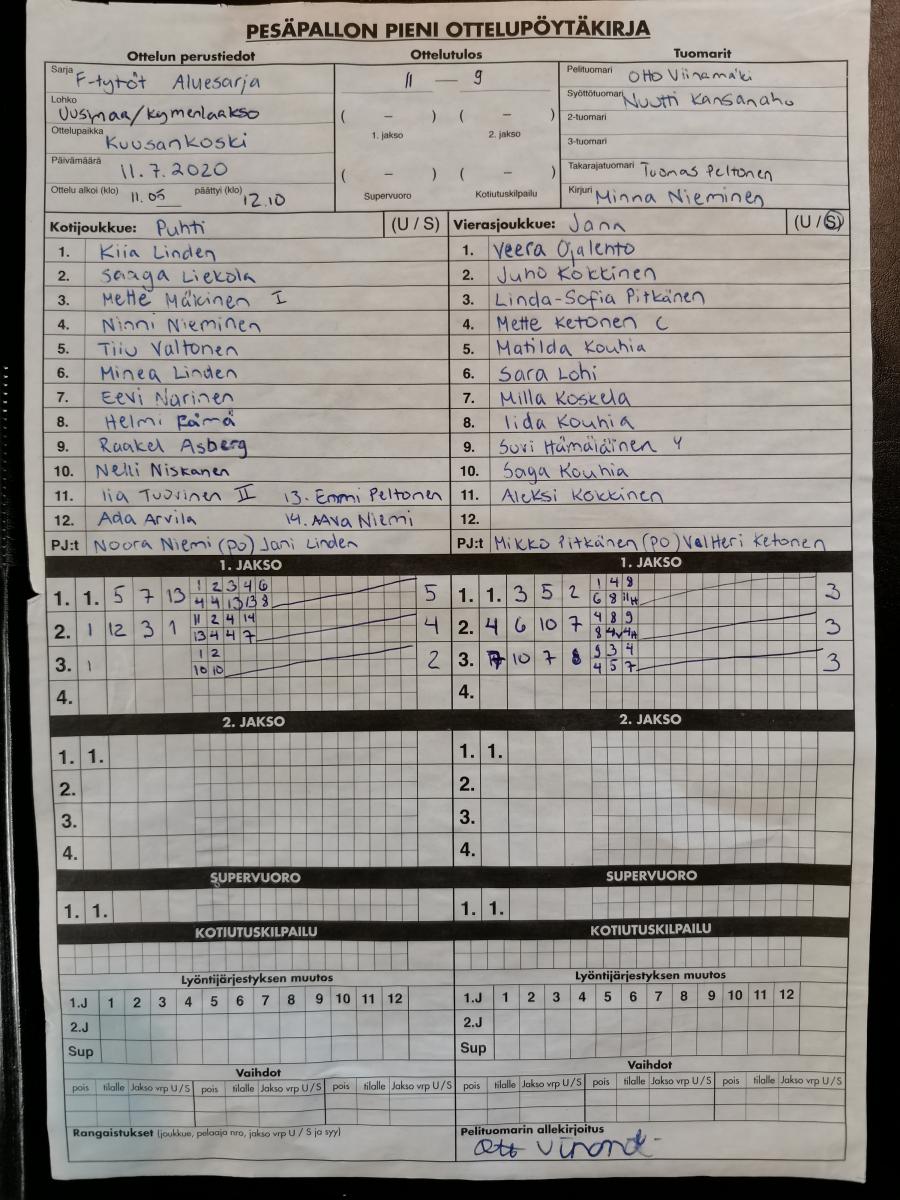 PESÄPALLON PIENI OTTELUPÖYTÄKIRJA
Ottelun perustiedot Ottelutulos Tuomarit
Sarja F-tytöt Aluesarja
Lohko Uusimaa/Kymenlaakso
Ottelupaikka Kuusankoski
Päivämäärä 11.7.2020
Ottelu alkoi (klo) 11.05 päättyi (klo) 12.10
11 — 9
( – ) ( – )
1. jakso 2. jakso
( – ) ( – )
Supervuoro Kotiutuskilpailu
Pelituomari Otto Viinamäki
Syöttötuomari Nuutti Kansanaho
2-tuomari
3-tuomari
Takarajatuomari Tuomas Peltonen
Kirjuri Minna Nieminen
Kotijoukkue: Puhti (U / S)
1. Kiia Linden
2. Saaga Liekola
3. Mette Mäkinen I
4. Ninni Nieminen
5. Tiiu Valtonen
6. Minea Linden
7. Eevi Narinen
8. Helmi Rämä
9. Raakel Asberg
10. Nelli Niskanen
11. Iia Tuovinen II 13. Emmi Peltonen
12. Ada Arvila 14. Aava Niemi
PJ:t Noora Niemi (po) Jani Linden
Vierasjoukkue: Jana (U / S)
1. Veera Ojalehto
2. Juho Kokkinen
3. Linda-Sofia Pitkänen
4. Mette Ketonen C
5. Matilda Kouhia
6. Sara Lohi
7. Milla Koskela
8. Iida Kouhia
9. Suvi Hämäläinen Y
10. Saga Kouhia
11. Aleksi Kokkinen
12.
PJ:t Mikko Pitkänen (po) Valtteri Ketonen
1. JAKSO
1 2 3 4 6
1. 1. 5 7 13 5
4 4 13 13 8
11 2 4 14
2. 1 12 3 1 4
13 4 4 7
1 2
3. 1 2
10 10
4.
1. JAKSO
1 4 8
1. 1. 3 5 2 3
6 8 11H
4 8 9
2. 4 6 10 7 3
8 4V 4H
9 3 4
3. 7 10 7 8 3
4 5 7
4.
2. JAKSO 2. JAKSO
1. 1. 1. 1.
2. 2.
3. 3.
4. 4.
SUPERVUORO SUPERVUORO
1. 1. 1. 1.
KOTIUTUSKILPAILU KOTIUTUSKILPAILU
Lyöntijärjestyksen muutos Lyöntijärjestyksen muutos
1.J 1 2 3 4 5 6 7 8 9 10 11 12 1.J 1 2 3 4 5 6 7 8 9 10 11 12
2.J 2.J
Sup Sup
Vaihdot Vaihdot
pois tilalle Jakso vrp U / S pois tilalle Jakso vrp U / S pois tilalle Jakso vrp U / S pois tilalle Jakso vrp U / S pois tilalle Jakso vrp U / S pois tilalle Jakso vrp U / S
Rangaistukset (joukkue, pelaaja nro, jakso vrp U / S ja syy)
Pelituomarin allekirjoitus